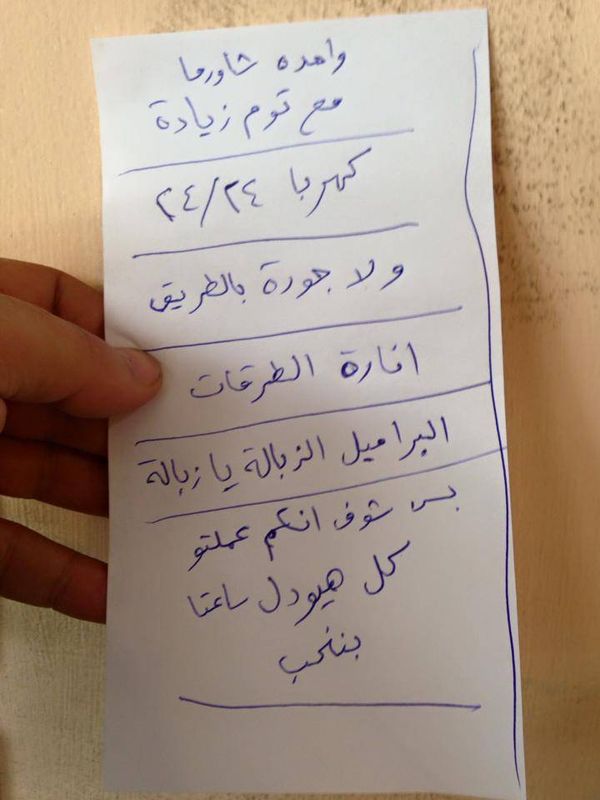 واحده شاورما
مع توم زيادة
كهربا ٢٤/٢٤
ولا جورة بالطريق
انارة الطرقات
البراميل الزبالة يا زبالة
بس شوف انكم عملتو
كل هيودل ساعتا
بننخب